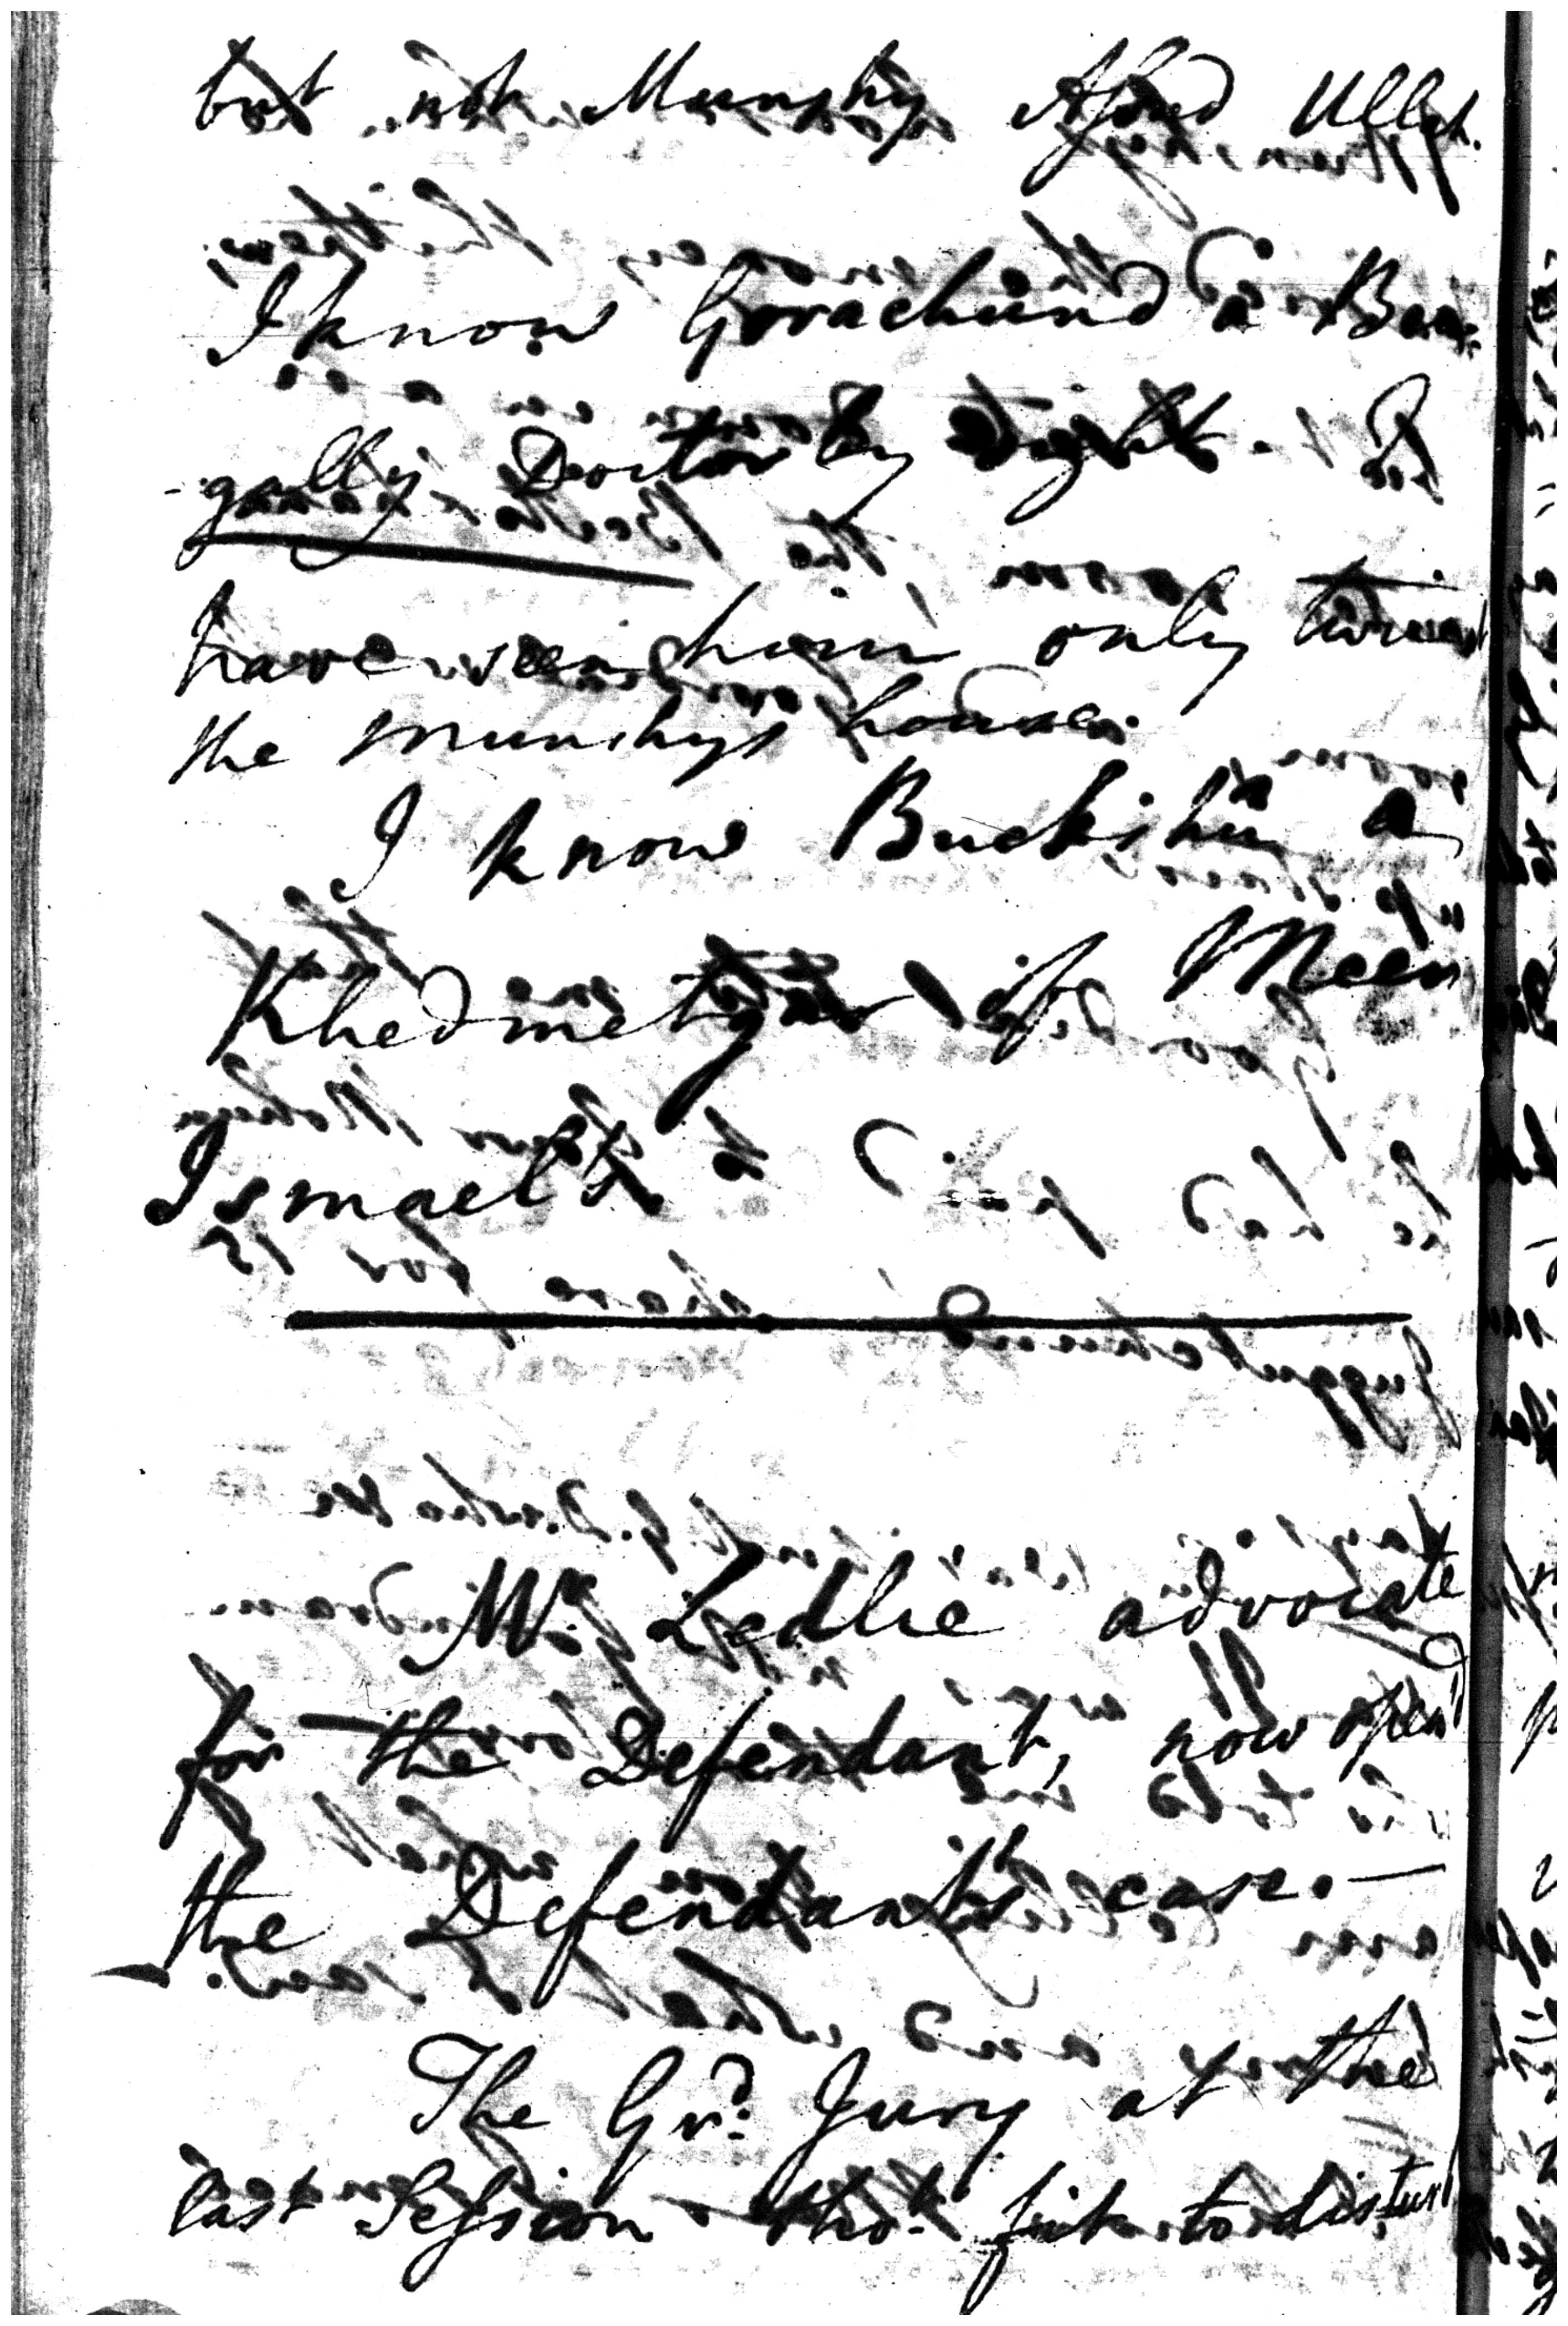 but not Munshy Asud Ullah.
I know Gorachund a Ben-
-gally Doctor by sight. I
have seen him only twice at
the Munshys house.
I know Buckshu a
Khedmetgar of Meer
Ismael's
Mr. Ledlie advocate
for the Defendant, now open'd
the Defendant's case. —
The Grd. Jury at the
last Session tho't fit to disturb